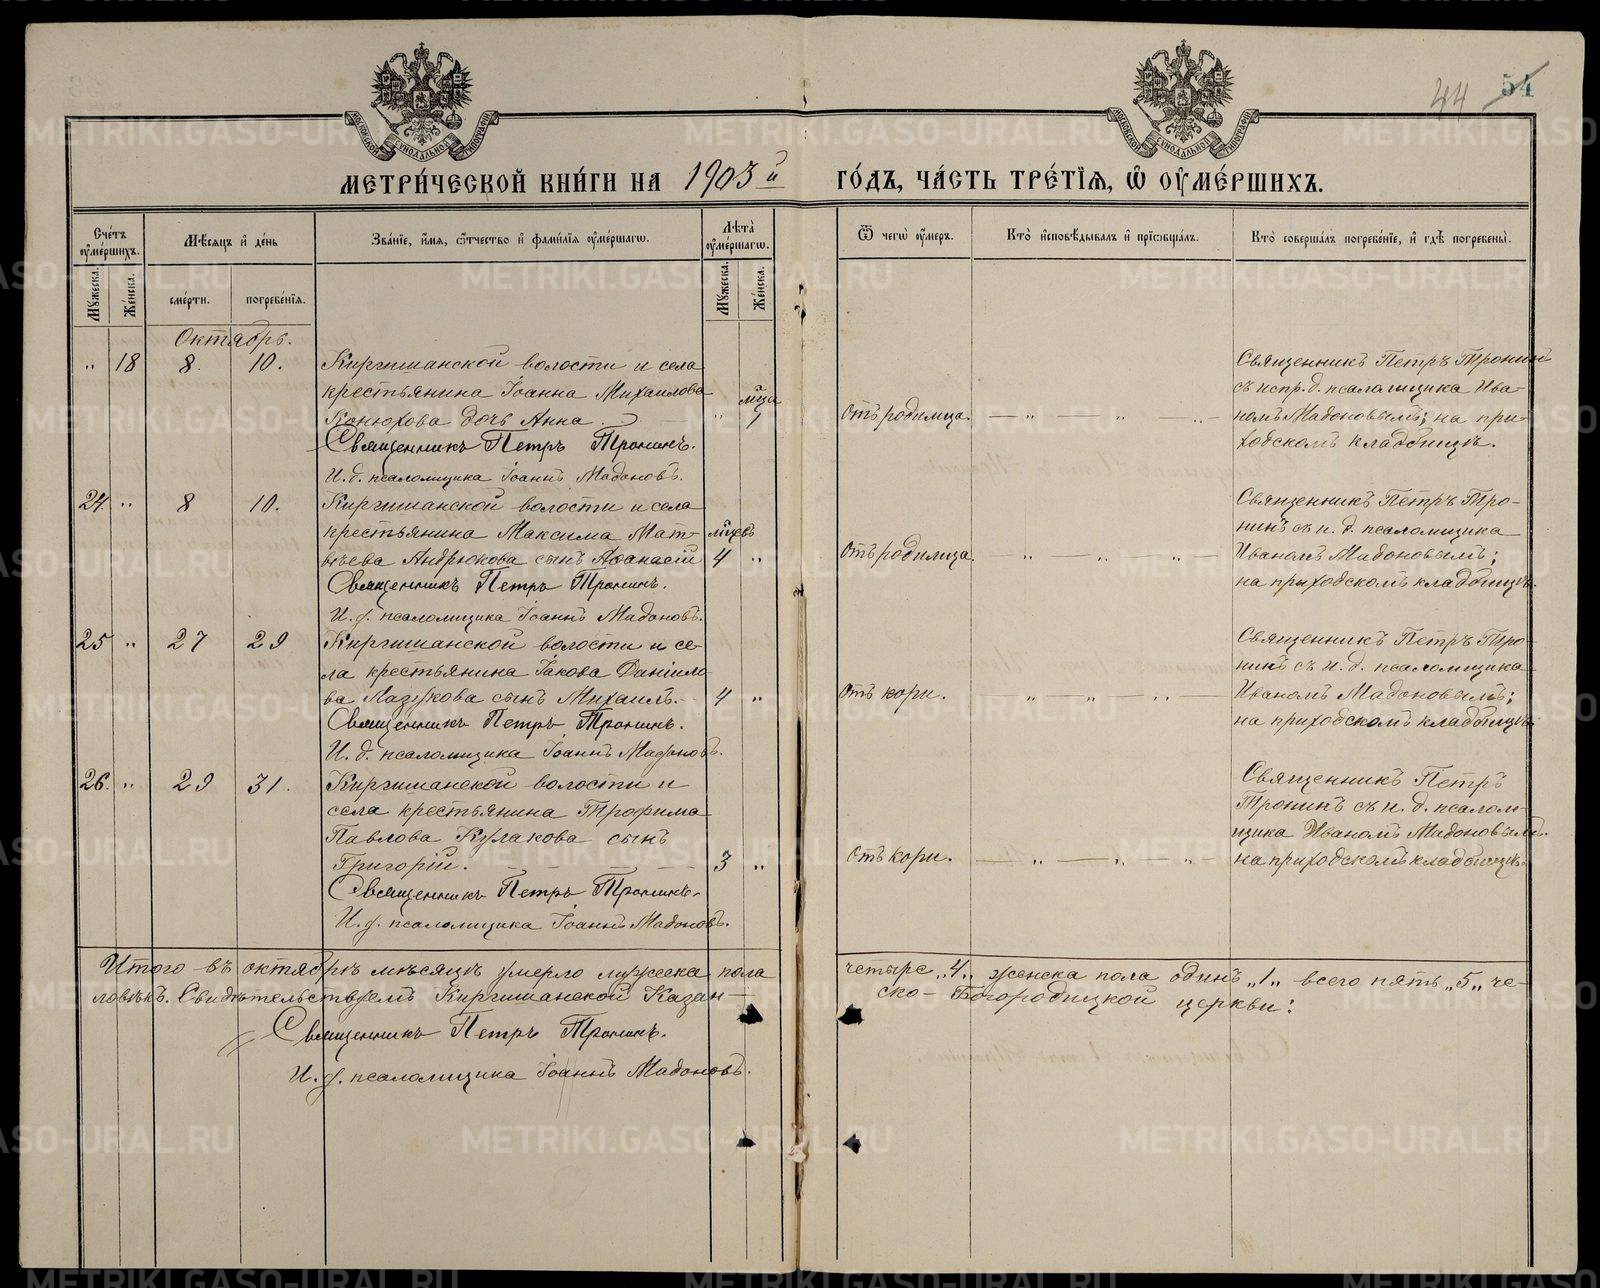 44 54
МОСКОВСКОЙ СУНОДАЛЬНОЙ ТИПОГРАФІИ
МОСКОВСКОЙ СУНОДАЛЬНОЙ ТИПОГРАФІИ
МЕТРИ́ЧЕСКОЙ КНИ́ГИ НА 1903 й ГО́ДЪ, ЧА́СТЬ ТРЕ́ТІЯ, Ѡ ОУ҆МЕ́РШИХЪ.
Сче́тъ оу҆ме́ршихъ.
Мꙋ́жеска.
Же́нска.
Мѣ́сяцъ и҆ де́нь
сме́рти.
погребе́нїя.
Зва́нїе, и҆́мя, ѻ҆́тчество и҆ фами́лїя оу҆ме́ршагѡ.
Лѣта̀ оу҆ме́ршагѡ.
Мꙋ́жеска.
Же́нска.
Ѿ чегѡ̀ оу҆́меръ.
Кто̀ и҆сповѣ́дывалъ и҆ прїѡбща́лъ.
Кто̀ соверша́лъ погребе́нїе, и҆ гдѣ̀ погребены̀.
Октябрь.
„ 18 8. 10. Киргишанской волости и села
крестьянина Іоанна Михаилова
Конюхова дочь Анна.
„ мѣца 1
Отъ родимца. — „ — „ „
Священникъ Петръ Тронинъ.
И. д. псаломщика Іоаннъ Мадоновъ.
Священникъ Петръ Тронинъ
съ испр. д. псаломщика Ива-
номъ Мадоновымъ; на при-
ходскомъ кладбищѣ.
24. „ 8 10. Киргишанской волости и села
крестьянина Максима Мат-
вѣева Андрюкова сынъ Аѳанасій
мѣцевъ 4 „
Отъ родимца — „ — „ — „ —
Священникъ Петръ Тронинъ.
И. д. псаломщика Іоаннъ Мадоновъ.
Священникъ Петръ Тро-
нинъ съ и. д. псаломщика
Иваномъ Мадоновымъ;
на приходскомъ кладбищѣ.
25 „ 27 29 Киргишанской волости и се-
ла крестьянина Іакова Даніило-
ва Мазукова сынъ Михаилъ. 4 „
Отъ кори. „ — „ — „ —
Священникъ Петръ Тронинъ.
И. д. псаломщика Іоаннъ Мадоновъ.
Священникъ Петръ Тро-
нинъ съ и. д. псаломщика
Иваномъ Мадоновымъ;
на приходскомъ кладбищѣ.
26. „ 29 31. Киргишанской волости и
села крестьянина Трофима
Павлова Кулакова сынъ
Григорій. 3 „
Отъ кори. — „ — „ — „
Священникъ Петръ Тронинъ.
И. д. псаломщика Іоаннъ Мадоновъ.
Священникъ Петръ
Тронинъ съ и. д. псалом-
щика Иваномъ Мадоновымъ.
на приходскомъ кладбищѣ.
Итого въ октябрѣ мѣсяцѣ умерло мужеска пола четыре „4„ женска пола одинъ „1„ всего пять „5„ че-
ловѣкъ. Свидѣтельствуемъ Киргишанской Казан-ско-Богородицкой церкви:
Священникъ Петръ Тронинъ.
И. д. псаломщика Іоаннъ Мадоновъ.
METRIKI.GASO-URAL.RU